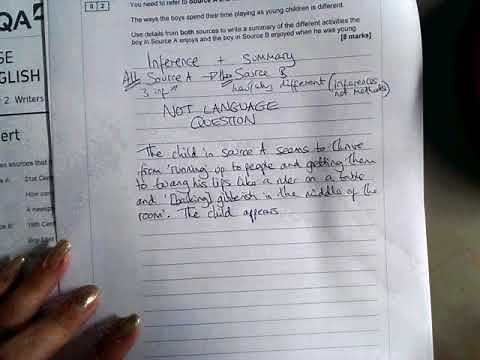 QA
SE
GLISH
2 Writers
ert
0 2
You need to refer to Source A
The ways the boys spend their time playing as young children is different.
Use details from both sources to write a summary of the different activities the
boy in Source A enjoys and the boy in Source B enjoyed when he was young
[8 marks]
Inference + Summary
All Source A → Source B
3 inf
how/why different (inferences
not methods)
NOT LANGUAGE
QUESTION
The child in source A seems to thrive
from 'running up to people and getting them
to twang his lips like a ruler on a table
and '[barking] gibberish in the middle of the
room'. The child appears
21st Cen
How con
A neglec
19th Cen